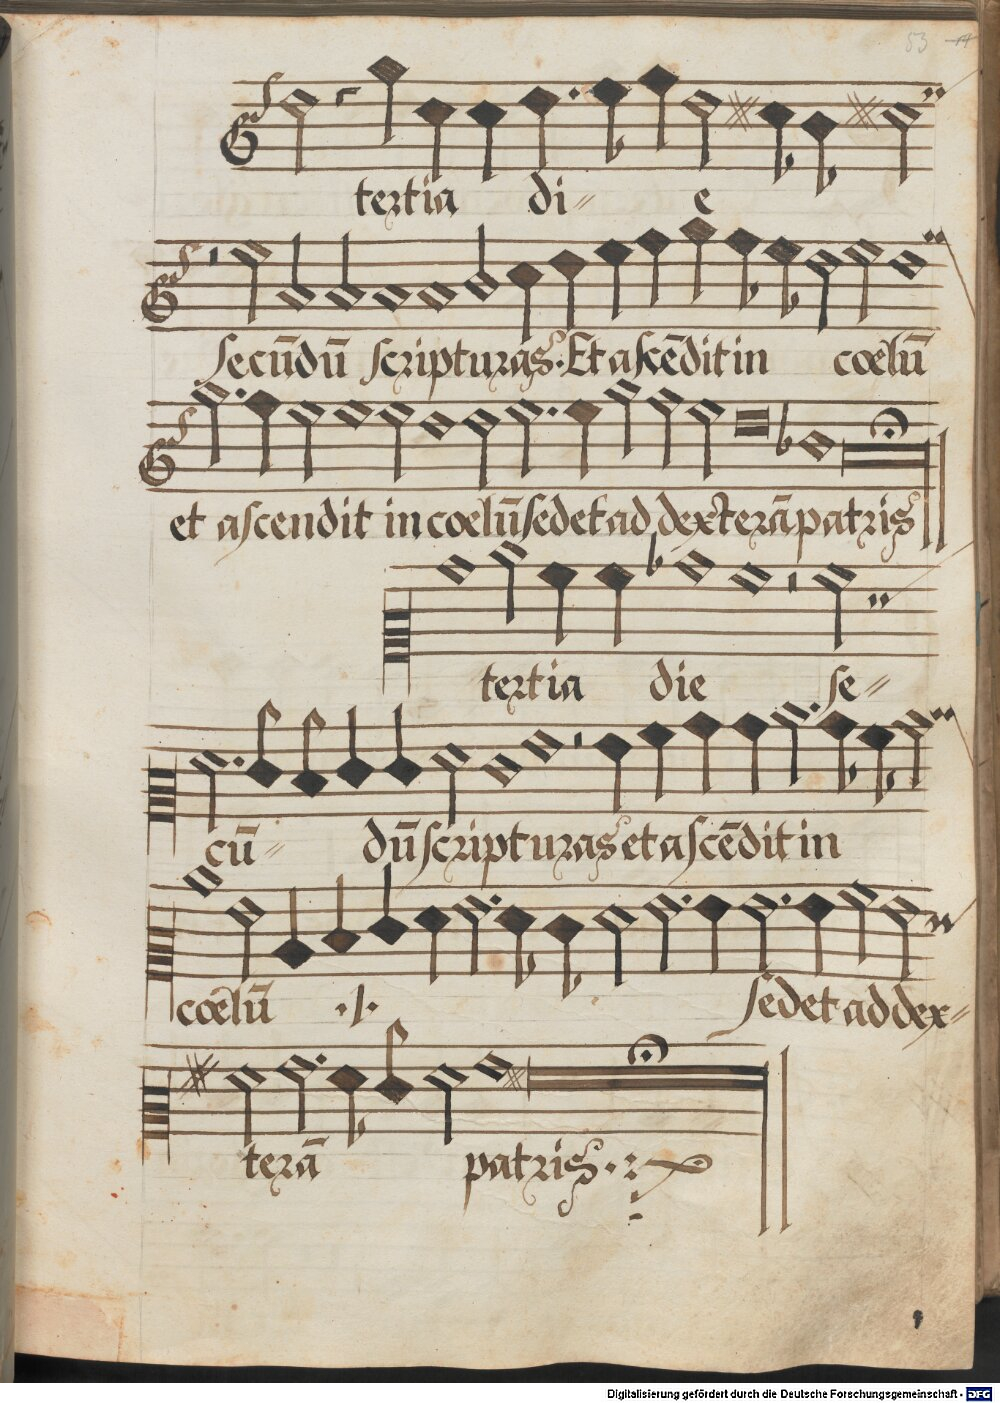 53
tertia di- e
secūdū scripturas. Et ascēdit in cœlū
et ascendit in cœlū sedet ad dexterā patris
tertia die se-
cū- dū scripturas et ascēdit in
cœlū ./. sedet ad dex-
terā patris.
Digitalisierung gefördert durch die Deutsche Forschungsgemeinschaft - DFG